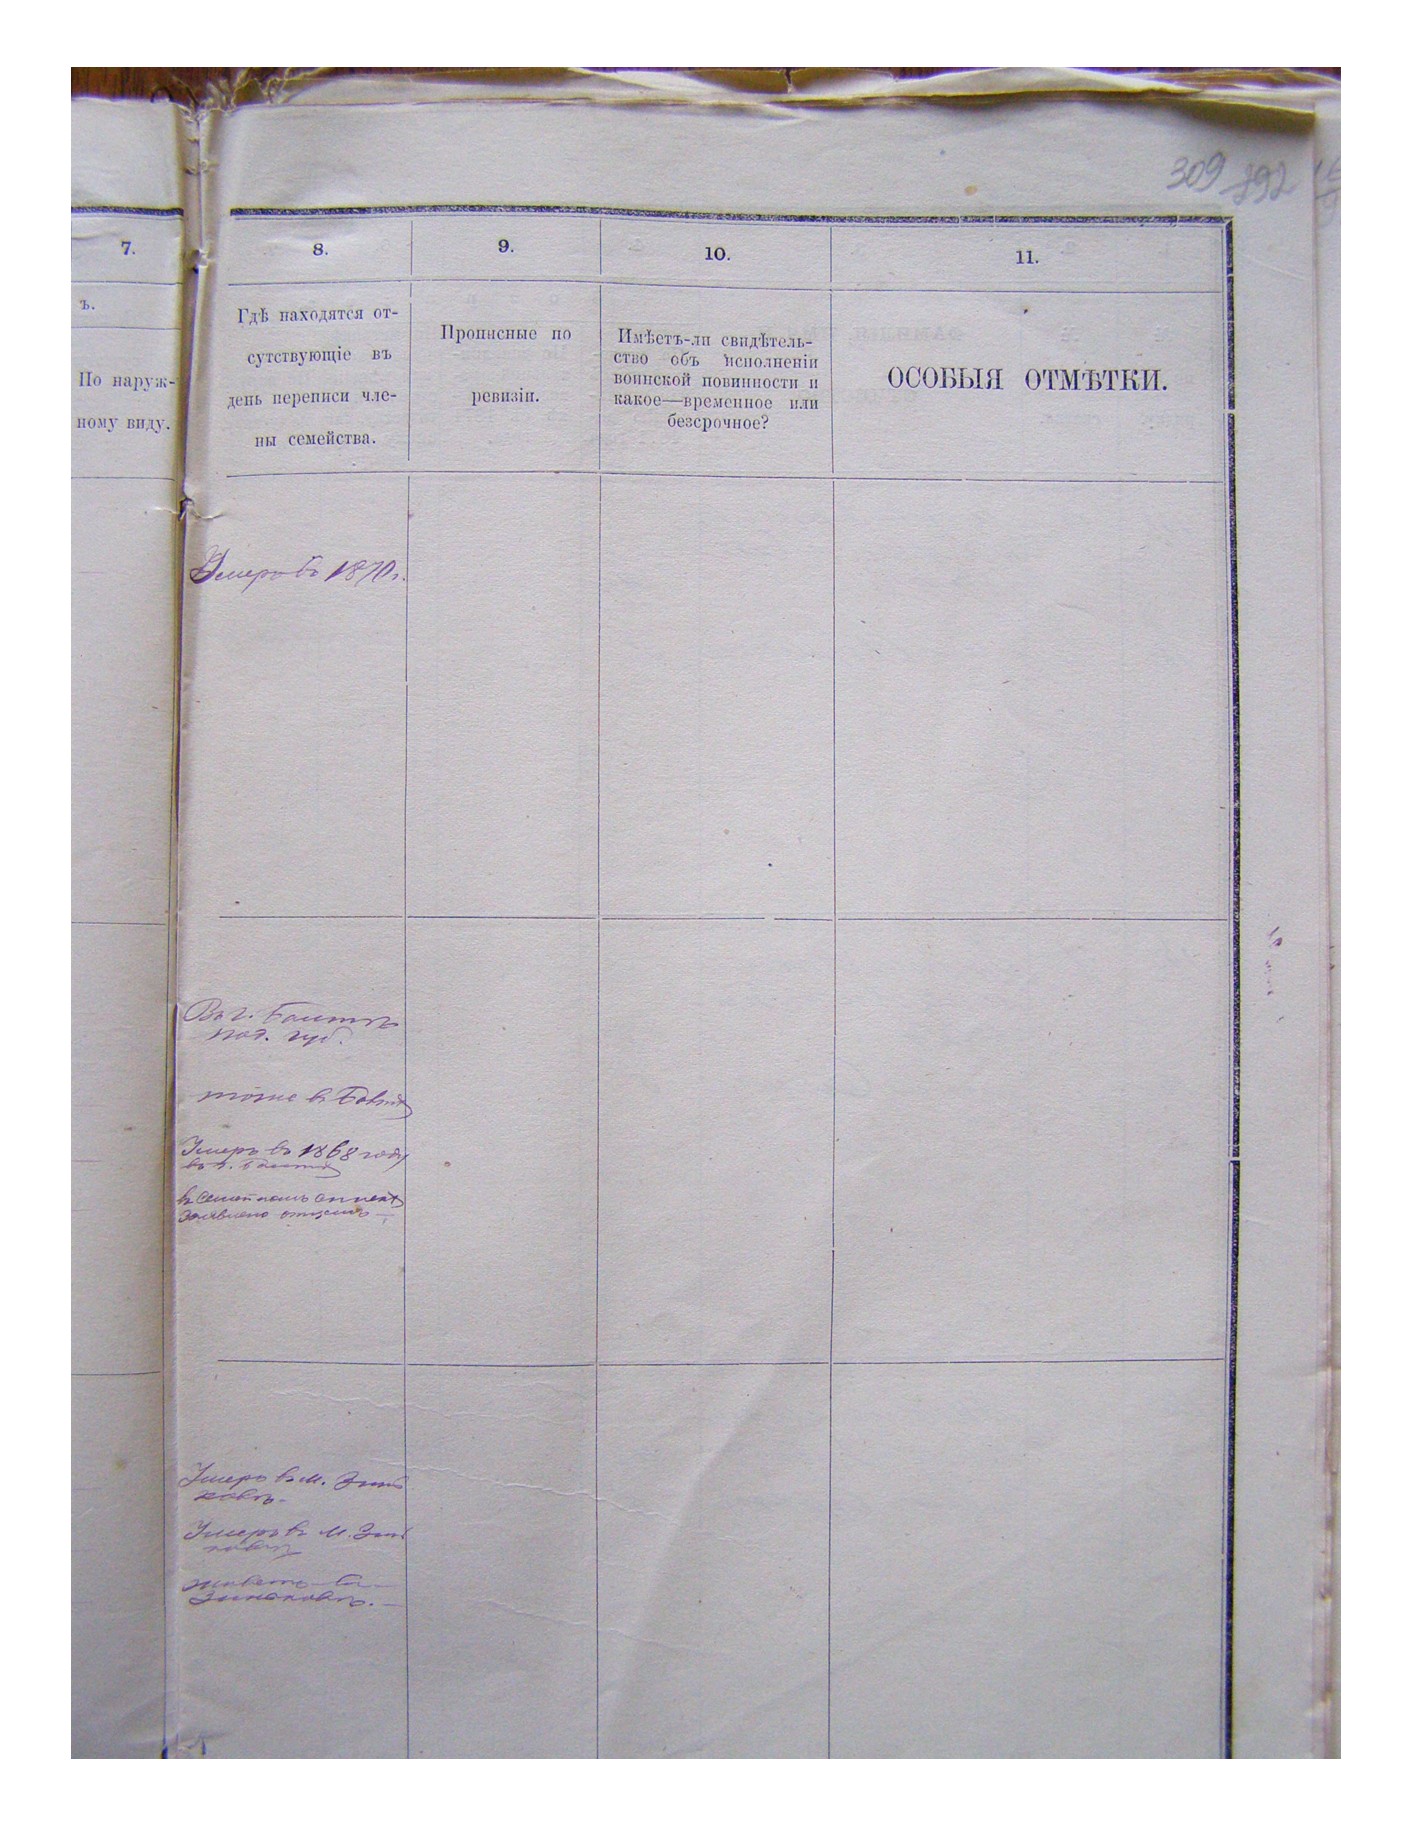 309 892
7.
8.
9.
10.
11.
ъ.
По наруж-
ному виду.
Гдѣ находятся от-
сутствующіе въ
день переписи чле-
ны семейства.
Прописные по
ревизіи.
Имѣетъ-ли свидѣтель-
ство объ исполненіи
воинской повинности и
какое—временное или
безсрочное?
ОСОБЫЯ ОТМѢТКИ.
Умеръ въ 1870 г.
Въ г. Балтѣ
под. губ.
тоже въ Балтѣ
Умеръ въ 1868 году
въ г. Балтѣ
въ
заявлено отцемъ —
Умеръ въ м. Зинь
ковѣ.
Умеръ въ м. Зинь
ковѣ
живетъ въ
Зиньковѣ. —